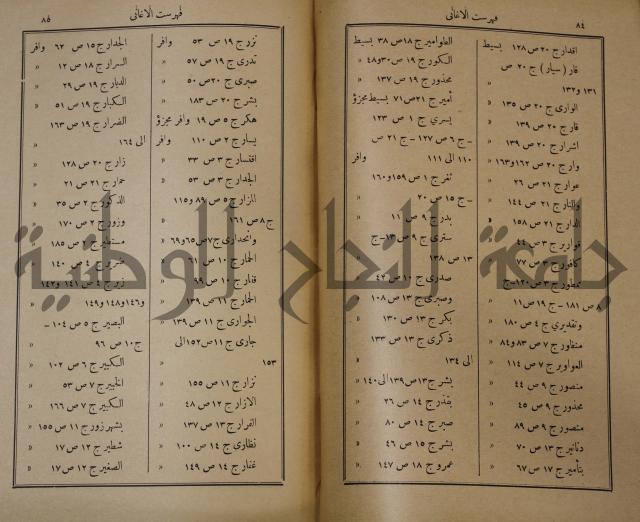 ٨٤
فهرست الاغانى
اقدارج ٢٠ ص ١٢٨ بسيط
قار (سيار) ج ٢٠ ص
١٣١ و١٣٢ «
الوارى ج ٢٠ ص ١٣٥ «
قارج ٢٠ ص ١٣٩ «
اشرارج ٢٠ ص ١٣٩ «
وارج ٢٠ ص ١٦٢ و١٦٣ «
عوارج ٢١ ص ٢٦ «
والنارج ٢١ ص ١٤٤ «
الدارج ٢١ ص ١٥٨ «
قواريرج ٣ ص ٤٤ «
كافورج ٣ ص ٧٧ «
ممطورج ٣ ص ١٢٠ – ج
٨ ص ١٨١ – ج ١٩ ص ١١ «
وتقديرى ج ٤ ص ١٨٠ «
منظورج ٧ ص ٨٣ و٨٤ «
العواويرج ٧ ص ١١٤ «
منصورج ٩ ص ٤٤ «
محذورج ٩ ص ٤٥ «
منصورج ٩ ص ٨٩ «
دنانيرج ١٣ ص ٧٠ «
بتأميرج ١٧ ص ٦٧ «
الطواميرج ١٨ ص ٣٨ بسيط
المكورج ١٩ ص ٣٠ و٤٨ «
محذورج ١٩ ص ١٣٧ «
أميرج ٢١ ص ٧١ بسيط مجزؤ
يسرى ج ١ ص ١٢٣
– ج ٦ ص ١٢٧ – ج ٢١ ص
١١٠ الى ١١١ وافر
ثغرج ١ ص ١٥٩ و١٦٠
– ج ١٥ ص ٢٠ «
بدرج ٩ ص ١١ «
سترى ج ٩ ص ١٣ – ج
١٣ ص ١٣٨ «
صدرى ج ١٠ ص ٤٢ «
وصبرى ج ١٣ ص ١٠٨ «
بكرج ١٣ ص ١٣٠ «
ذكرى ج ١٣ ص ١٣٣
الى ١٣٤ «
بشرج ١٣ ص ١٣٩ الى ١٤٠ «
بقذرج ١٤ ص ٢٦ «
صبرج ١٤ ص ٨٠ «
بشرج ١٥ ص ٤٦ «
عمروج ١٨ ص ١٤٧ «
فهرست الاغانى
٨٥
نزرج ١٩ ص ٥٣ وافر
تدرى ج ١٩ ص ٥٧ «
صبرى ج ٢٠ ص ٥٠ «
بشرج ٢٠ ص ١٨٣ «
هكرج ٥ ص ١٩ وافر مجزؤ
يسارج ٢ ص ١١٠ وافر
اقتسارج ٣ ص ٣٣ «
الجدارج ٣ ص ٥٣ «
المزارج ٥ ص ٨٩ و١١٥
ج ٨ ص ١٦١ «
وانحدارى ج ٧ ص ٦٥ و٦٩ «
الحارج ١٠ ص ٦١ «
قنارج ١٠ ص ٩٩ «
الخارج ١١ ص ١٣٩ «
الجوارى ج ١١ ص ١٣٩ «
جارى ج ١١ ص ١٥٢ الى
١٥٣ «
نزارج ١١ ص ١٥٥ «
الازارج ١٢ ص ٤٨ «
القرارج ١٣ ص ١٣٧ «
نظارى ج ١٤ ص ١٠٠ «
غفارج ١٤ ص ١٤٩ «
الجدارج ١٥ ص ٦٢ وافر
السرارج ١٨ ص ١٢ «
الديارج ١٩ ص ٢٩ «
الكبارج ١٩ ص ٥١ «
الضرارج ١٩ ص ١٦٣
الى ١٦٤ «
زارج ٢٠ ص ١٢٨ «
حمارج ٢١ ص ٢١ «
الذكورج ٢ ص ٣٥ «
وزورج ٢ ص ١٧٠ «
مستعيرج ٢ ص ١٨٥ «
ج ٤ ص ١٤٠ «
زيرج ٤ ص ١٤١ و١٤٢
و١٤٦ و١٤٨ و١٤٩ «
البصيرج ٥ ص ١٠٤ –
ج ١٠ ص ٩٦ «
الكبيرج ٦ ص ١٠٢ «
الخبيرج ٧ ص ٥٣ «
الكبيرج ٧ ص ١٦٦ «
بشهرزورج ١١ ص ١٥٥ «
شطيرج ١٢ ص ١٧ «
الصغيرج ١٢ ص ١٧ «
جامعة النجاح الوطنية